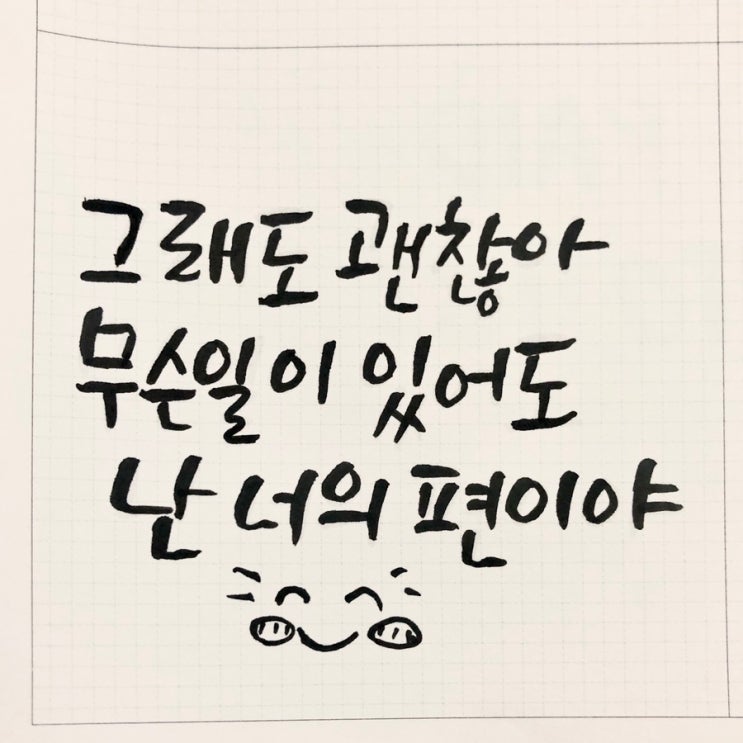 그래도 괜찮아
무슨일이 있어도
난 너의 편이야